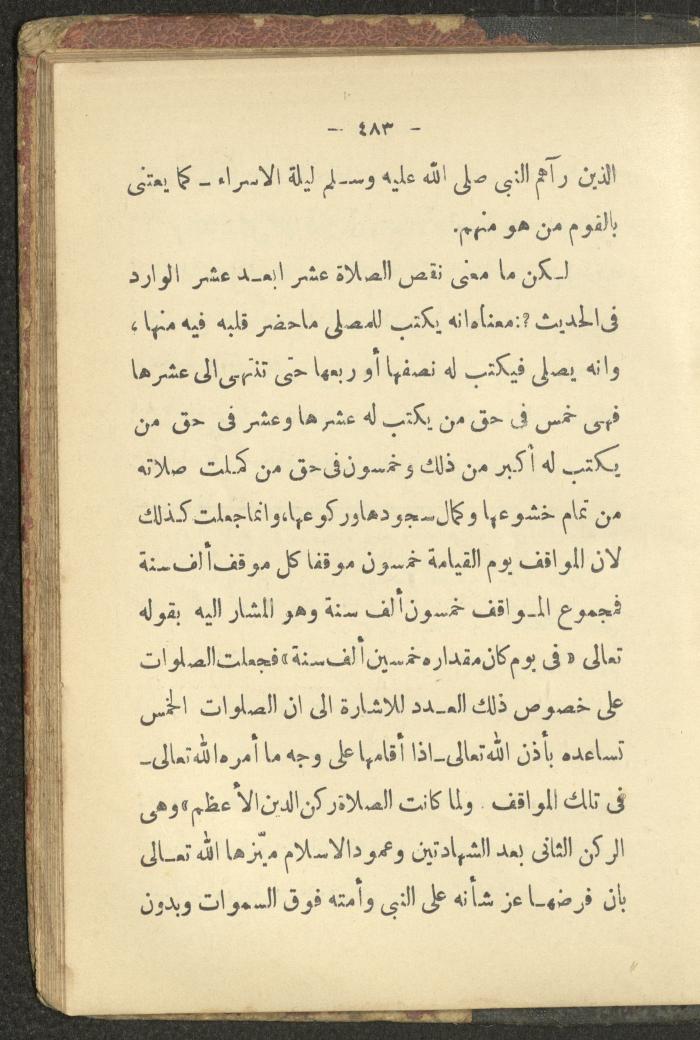 - ٤٨٣ -
الذين رآهم النبي صلى الله عليه وسلم ليلة الاسراء - كما يعتنى
بالقوم من هو منهم.
لكن ما معنى نقص الصلاة عشر ابعد عشر الوارد
فى الحديث ؟: معناه انه يكتب للمصلى ماحضر قلبه فيه منها ،
وانه يصلى فيكتب له نصفها أو ربعها حتى تنتهى الى عشرها
فهى خمس فى حق من يكتب له عشرها وعشر فى حق من
يكتب له أكبر من ذلك وخمسون فى حق من كملت صلاته
من تمام خشوعها وكمال سجودها وركوعها، وانما جعلت كذلك
لان المواقف يوم القيامة خمسون موقفا كل موقف ألف سنة
فمجموع المواقف خمسون ألف سنة وهو المشار اليه بقوله
تعالى « فى يوم كان مقداره خمسين ألف سنة » فجعلت الصلوات
على خصوص ذلك العدد للاشارة الى ان الصلوات الخمس
تساعده بأذن الله تعالى - اذا أقامها على وجه ما أمره الله تعالى -
فى تلك المواقف . ولما كانت الصلاة ركن الدين الأعظم » وهى
الركن الثانى بعد الشهادتين وعمود الاسلام ميّزها الله تعالى
بان فرضها عز شأنه على النبي وأمته فوق السموات وبدون